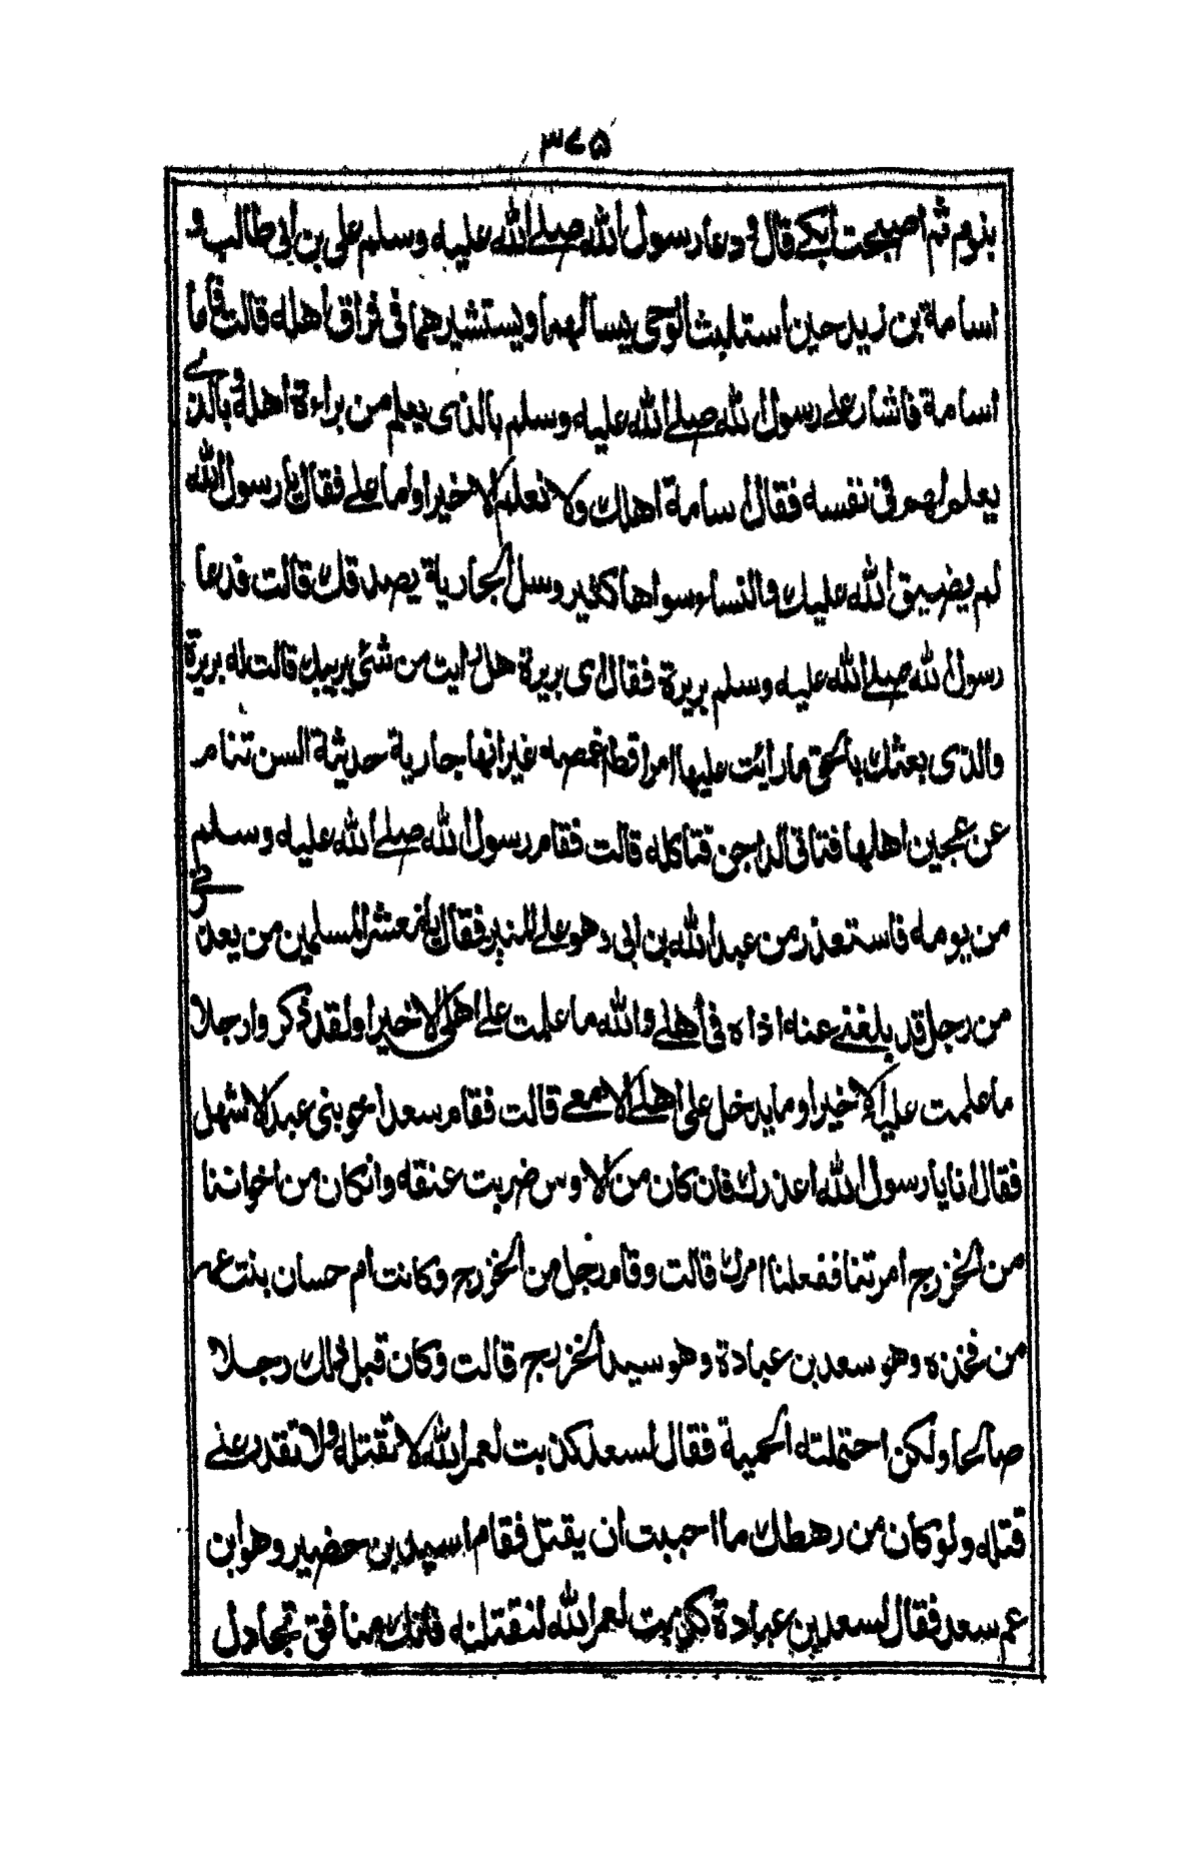 ۳۷۵
بنوم ثم اصبحت أبكے قال ودعا رسول الله صلے الله عليه وسلم على بن ابى طالب و
اسامة بن زيد حين استلبث الوحى يسالهما ويستشيرهما فى فراق اهله قالت فاما
اسامة فاشار علے رسول لله صلے الله عليه وسلم بالذى يعلم من براءة اهله وبالذے
يعلم لهم فى نفسه فقال اسامة اهلك ولا نعلم الا خيرا واما علے فقال يا رسول الله
لم يضيق الله عليك والنساء سواها كثير وسل الجارية يصدقك قالت فدعا
رسول لله صلے الله عليه وسلم بريرة فقال اى بريرة هل رايت من شئ يريبك قالت له بريرة
والذى بعثك بالحق ما رأيت عليها امرا قط اغمصه غير انها جارية حديثة السن تنام
عن عجين اهلها فتاتى الداجن فتاكله قالت فقام رسول لله صلے الله عليه وسلم
من يومه فاستعذر من عبد الله بن ابى وهو علے المنبر فقال يا معشر المسلمين من يعذرنے
من رجل قد بلغنے عنه اذاه فى أهلے والله ما علمت علے اهلى الا خيرا ولقد ذكروا رجلا
ما علمت عليه الا خيرا وما يدخل على اهلے الا معے قالت فقام سعد اخو بنى عبد الاشهل
فقال انا يا رسول الله اعذرك فان كان من الاوس ضربت عنقه وانكان من اخواننا
من الخزرج امرتنا ففعلنا امرك قالت وقام رجل من الخزرج وكانت ام حسان بنت عمه
من فخذه وهو سعد بن عبادة وهو سيد الخزرج قالت وكان قبل ذلك رجلا
صالحا ولكن احتملته الحمية فقال لسعد كذبت لعمر الله لا تقتله ولا تقدر علے
قتله ولو كان من رهطك ما احببت ان يقتل فقام اسيد بن حضير وهو ابن
عم سعد فقال لسعد بن عبادة كذبت لعمر الله لنقتلنه فانك منافق تجادل